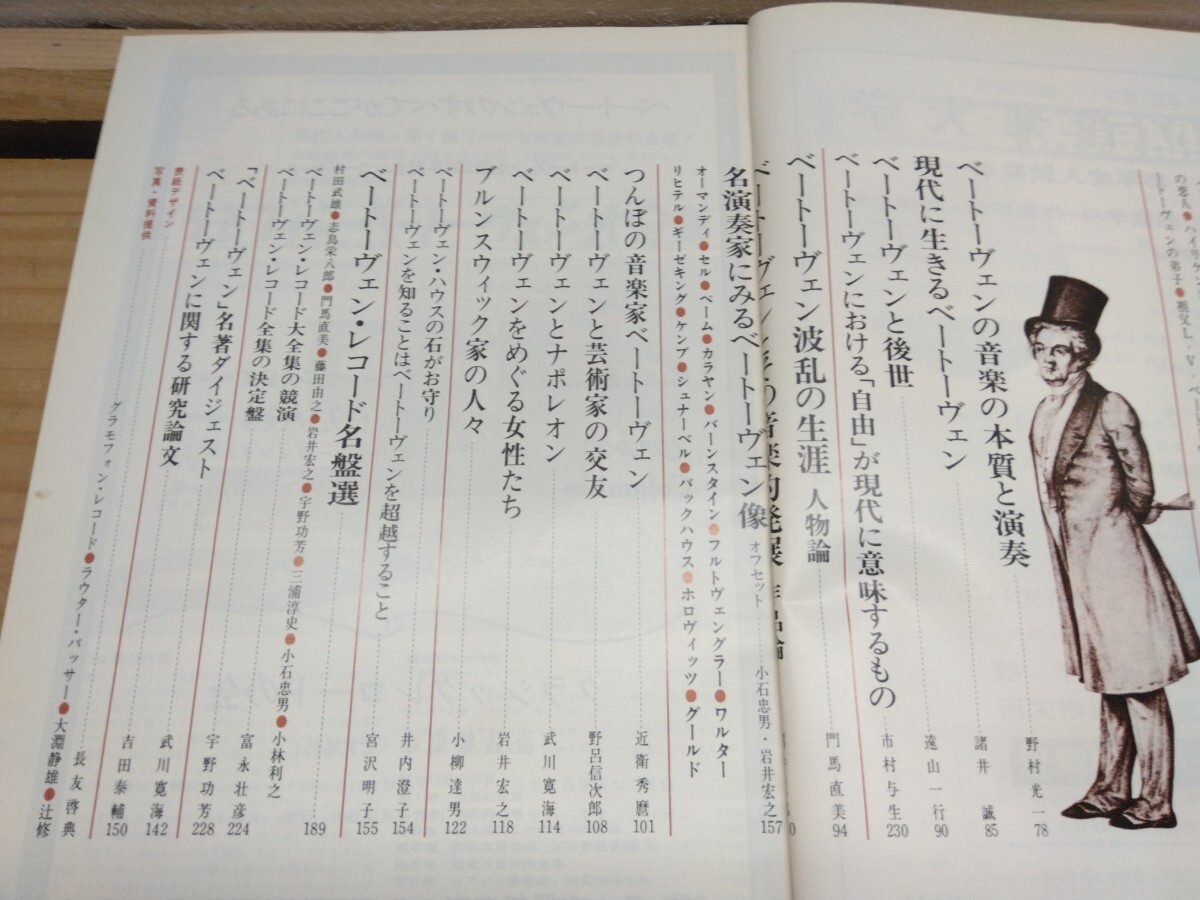 の恋人●ハイリゲ
トーヴェンの弟子●祖父L・v・ベ
ベートーヴェンの音楽の本質と演奏 野村光一 78
現代に生きるベートーヴェン 諸井誠 85
ベートーヴェンと後世 遠山一行 90
ベートーヴェンにおける「自由」が現代に意味するもの 市村与生 230
ベートーヴェン波乱の生涯 人物論 門馬直美 94
名演奏家にみるベートーヴェン像 オフセット 小石忠男・岩井宏之 157
オーマンディ●セル●ベーム●カラヤン●バーンスタイン●フルトヴェングラー●ワルター
リヒテル●ギーゼキング●ケンプ●シュナーベル●バックハウス●ホロヴィッツ●グールド
つんぼの音楽家ベートーヴェン 近衛秀麿 101
ベートーヴェンと芸術家の交友 野呂信次郎 108
ベートーヴェンとナポレオン 武川寛海 114
ベートーヴェンをめぐる女性たち 岩井宏之 118
ブルンスウィック家の人々 小柳達男 122
ベートーヴェン・ハウスの石がお守り 井内澄子 154
ベートーヴェンを知ることはベートーヴェンを超越すること 宮沢明子 155
ベートーヴェン・レコード名盤選 189
村田武雄●志鳥栄八郎●門馬直美●藤田由之●岩井宏之●宇野功芳●三浦淳史●小石忠男●小林利之
ベートーヴェン・レコード大全集の競演 富永壮彦 224
ベートーヴェン・レコード全集の決定盤 宇野功芳 228
「ベートーヴェン」名著ダイジェスト 武川寛海 142
ベートーヴェンに関する研究論文 吉田泰輔 150
表紙デザイン 長友啓典
写真・資料提供 グラモフォン・レコード●ラウター・バッサー●大淵静雄●辻修